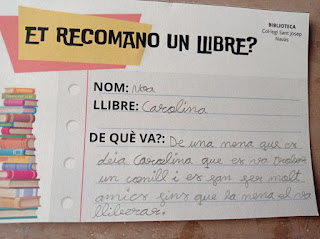 ET RECOMANO UN LLIBRE?
BIBLIOTECA
Col·legi Sant Josep
Navàs
NOM: Nora
LLIBRE: Carolina
DE QUÈ VA?: De una nena que es
deia Carolina que es va trobar
un conill i es van fer molt
amics fins que la nena el va
lliberar.